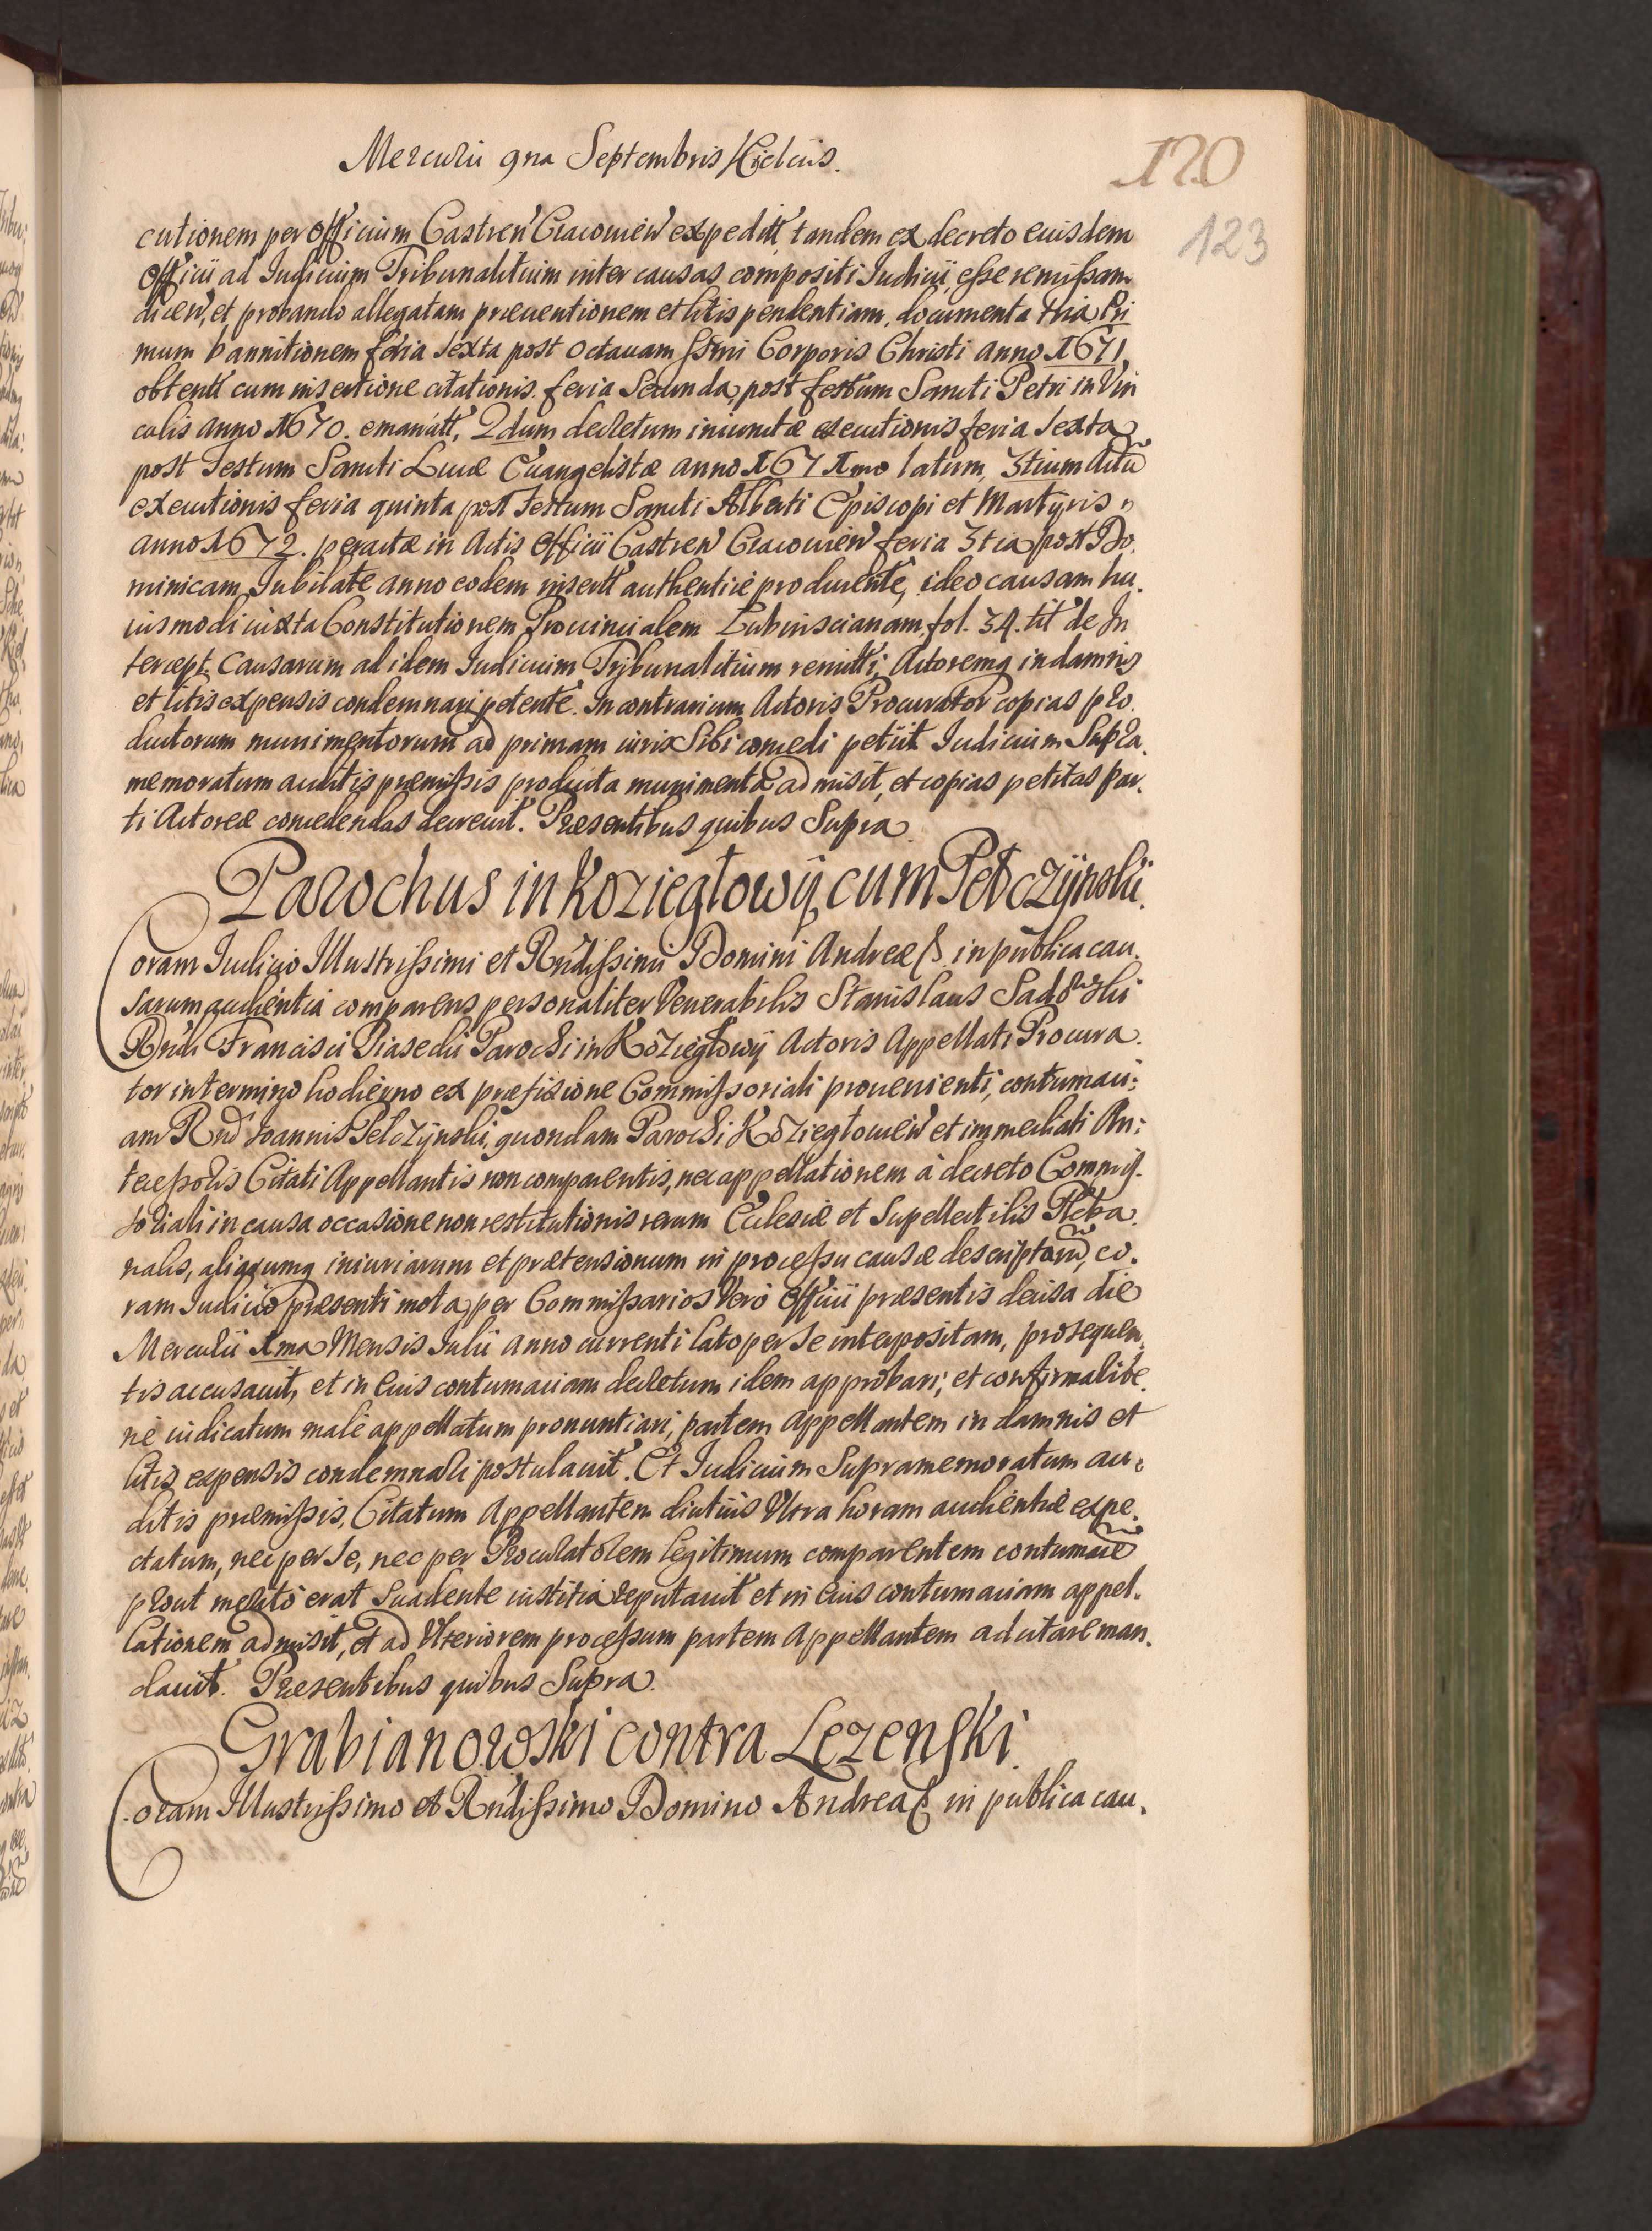 Mercurii 9na Septembris Kielciis.
120
123
cutionem per officium Castren̄ Cracouien̄ expeditt tandem ex decreto euisdem
Officii ad Iudicium Tribunalitium inter causas compositi Iudicii, esse remissam
dicen̄, et probando allegatam præuentionem et litis pendentiam, documenta tria, Pri
mum bannitionem feria sexta post octauam ssmi Corporis Christi anno 1671
obtentt cum insertione citationis feria Secunda post festum Sancti Petri in Vin
culis anno 1670. emanatt, 2dum decretum iniunctæ executionis feria sexta
post Festum Sancti Lucæ Euangelistæ anno 1671mo latum, 3tium Actū
executionis feria quinta post Festum Sancti Alberti Episcopi et Martyris
anno 1672. peractæ in Actis Officii Castren̄ Cracouien̄ feria 3tia post Do.
minicam Iubilate anno eodem insertt authenticè producente, ideo causam hu.
iusmodi iuxta Constitutionem Prouincialem Lubinscianam fol. 34. tit de In
tercept. Causarum ad idem Iudicium Tribunalitium remitti, Actoremq in damnis
et litis expensis condemnari petente. In contrarium Actoris Procurator copias pro.
ductorum munimentorum ad primam iuris Sibi concedi petiit. Iudicium Supra.
memoratum auditis præmissis producta munimenta admisit, et copias petitas par.
ti Actoreæ concedendas decreuit. Præsentibus quibus Supra
Parochus in Koziegłowÿ cum Pełczÿnski.
Coram Iudicio Illustrissimi et Rndissimi Domini Andreæ &. in publica cau.
sarum audientia comparens personaliter Venerabilis Stanislaus Sadowski
Rndi Francisci Piasecki Parochi in Koziegłowÿ Actoris Appellati Procura.
tor in termino hodierno ex præfixione Commissoriali proueniente, contumaci:
am Rnd Joannis Pelczÿnski quondam Parochi Koziegłouien̄ et immediati An:
tecessoris Citati Appellantis non comparentis, nec appellationem à decreto Commis.
soriali in causa occasione non restitutionis rerum Ecclesiæ et Supellectilis Pleba.
nalis, aliarumq iniuriarum et prætensionum in processu causæ descriptarū, co.
ram Iudicio præsenti mota, per Commissarios Verò Officii præsentis decisa die
Mercurii 1ma Mensis Iulii anno currenti lato per se interpositam, prosequen.
tis accusauit, et in Eius contumaciam decretum idem approbari, et confirmari be.
nè iudicatum malè appellatum pronuntiari, partem Appellantem in damnis et
litis expensis condemnari postulauit. Et Iudicium Supramemoratum au:
ditis præmissis, Citatum Appellantem diutiùs Vltra horam audientiæ expe.
ctatum, nec per se, nec per Procuratorem legitimum comparentem contumacē
prout meritò erat suadente iustitia reputauit et in Eius contumaciam appel.
lationem admisit, et ad Vlteriorem processum partem Appellantem adcitare man.
dauit. Præsentibus quibus Supra.
Grabianowski contra Lezenski.
Coram Illustrissimo et Rndissimo Domino Andrea & in publica cau.